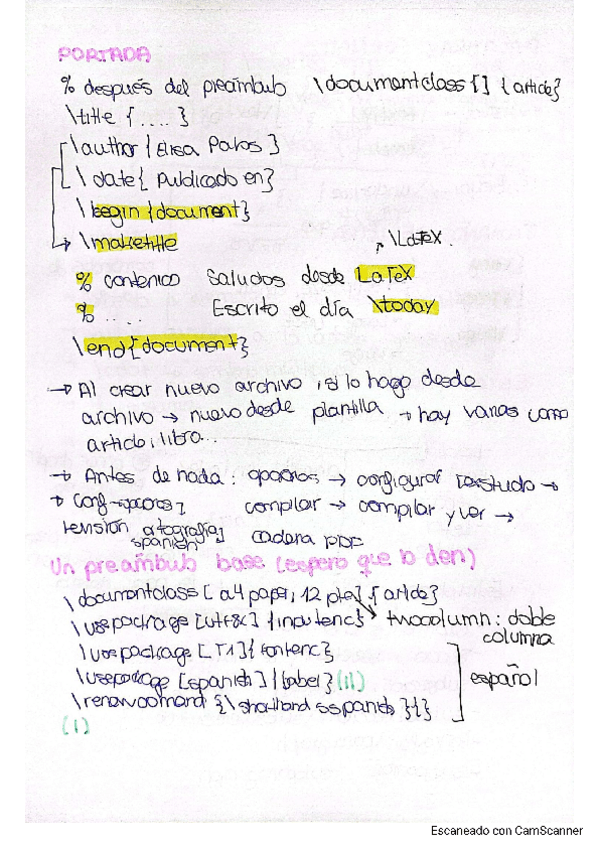 PORTADA
% después del preámbulo \documentclass{} {article}
\title {....}
\author {Elisa Palos }
\date{ Publicado en}
\begin {document}
\maketitle
\LaTeX.
% contenico Saludos desde LaTeX
% ..... Escrito el día \today
\end{document}
→ Al crear nuevo archivo, si lo hago desde
archivo → nuevo desde plantilla → hay varias como
articlo, libro...
→ Antes de nada: opciones → configurar texstudo →
compilar → compilar y ver →
revisión ortografía]
spanish
cadena PDF
Un preámbulo base (espero que lo den)
\documentclass [a4 paper, 12 pte] {article}
\usepackage [utf8] {inputenc} twocolumn: doble
columna
\usepackage [T1] {fontenc}
\usepackage [spanish] {babel} (11) español
\renewcommand {\shorthandsspanish }{}
(1)
Escaneado con CamScanner